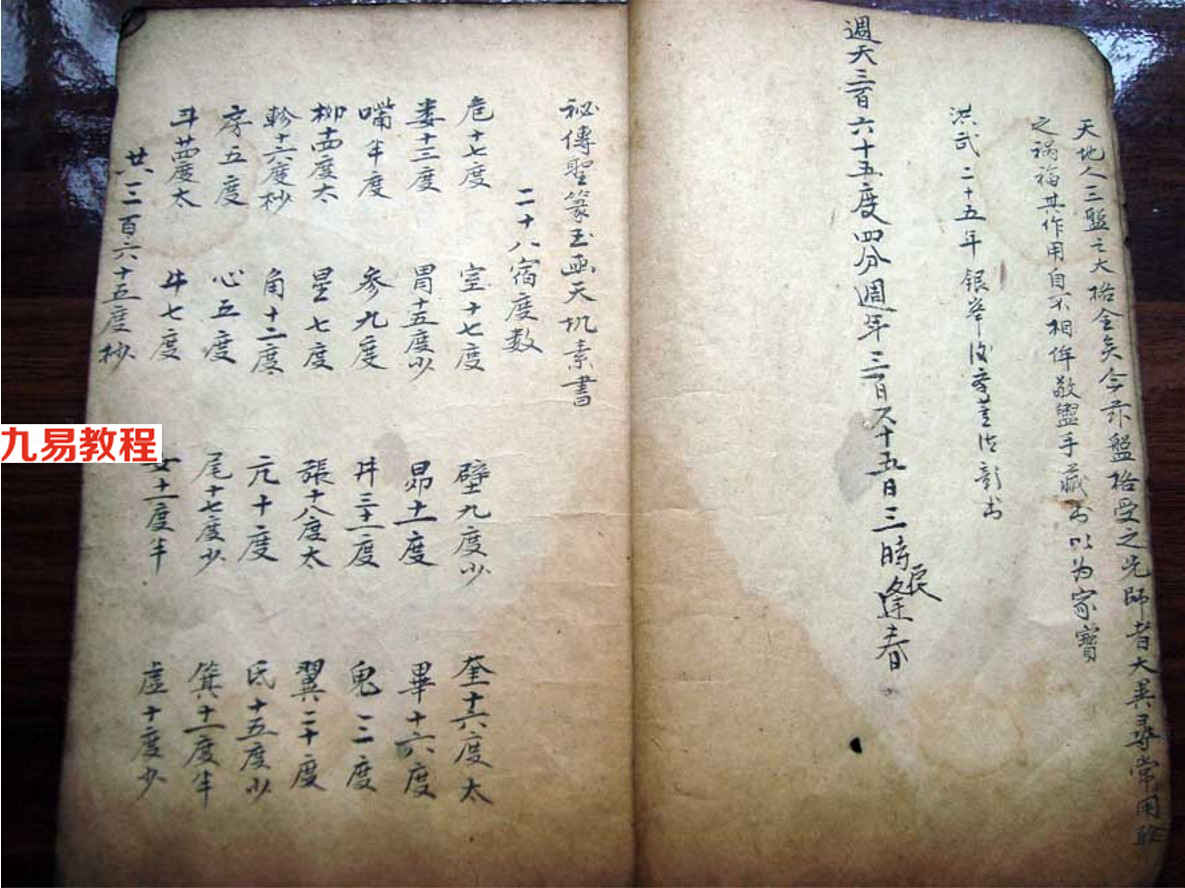 天地人三盤之大格全矣今亦盤格受之先師者大異尋常用
之禍福其作用自不相侔敬盥手藏书以为家寶
洪武二十五年銀峯後
週天三百六十五度四分週年三百六十五日三時辰逢春
秘傳聖篆玉函天机素書
二十八宿度數
危十七度 室十七度 壁九度少 奎十六度太
婁十二度 胃十五度少 昴十一度 畢十六度
嘴半度 參九度 井三十一度 鬼二度
柳十四度太 星七度 張十八度太 翼二十度
軫十六度秒 角十二度 亢十度 氐十五度少
房五度 心五度 尾十七度少 箕十一度半
斗廿四度太 牛七度 女十一度半 虛十度少
共三百六十五度秒
九易教程